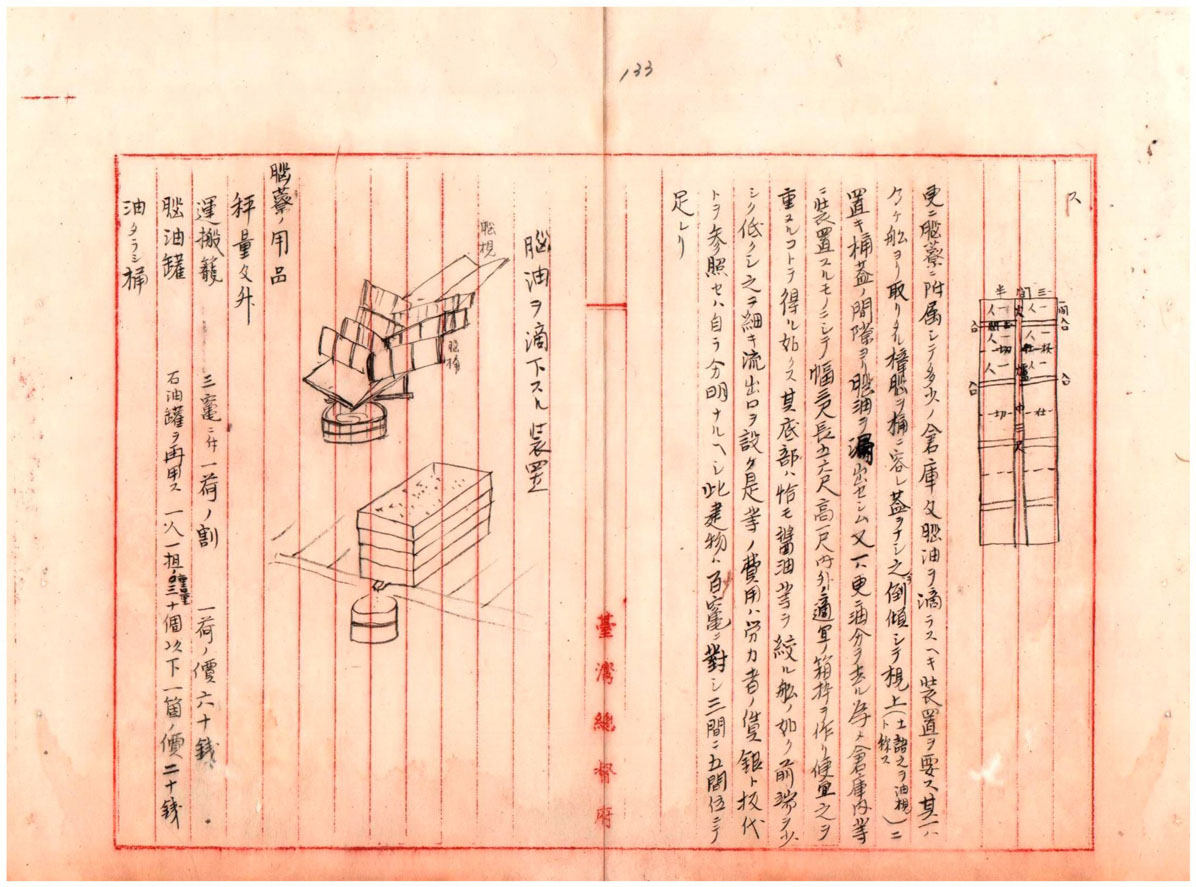 133
ス
三間半
更ニ腦藔ニ附属シテ多少ノ倉庫及腦油ヲ滴ラスヘキ装置ヲ要ス其一ハ
船ヨリ取リタル樟腦ヲ桶ニ容レ蓋ヲナシ之ヲ倒傾シテ梘上(土語之ヲ油梘ト称ス)ニ
置キ桶蓋ノ間隙ヨリ腦油ヲ漏出セシム又一ハ更ニ油分ヲ去ル為メ倉庫内等
ニ装置スルモノニシテ幅三尺長五六尺高一尺内外ノ適宜ノ箱枠ヲ作リ便宜之ヲ
重ヌルコトヲ得ル如クス其底部ハ恰モ醤油等ヲ絞ル船ノ如ク前端ヲ少
シク低クシ之ヲ細キ流出口ヲ設ク是等ノ費用ハ労力者ノ賃銀ト板代
トヲ参照セハ自ラ分明ナルヘシ此建物ハ百竈ニ對シ三間ニ五間位ニテ
足レリ
臺灣總督府
腦油ヲ滴下スル装置
腦梘
腦桶
腦藔ノ用品
秤量文外
運搬籠 三竈ニ付一荷ノ割 一荷ノ價六十錢
腦油罐 石油罐ヲ再用ス 一人一担ノ重量三十個以下一箇ノ價二十錢
油タラシ桶